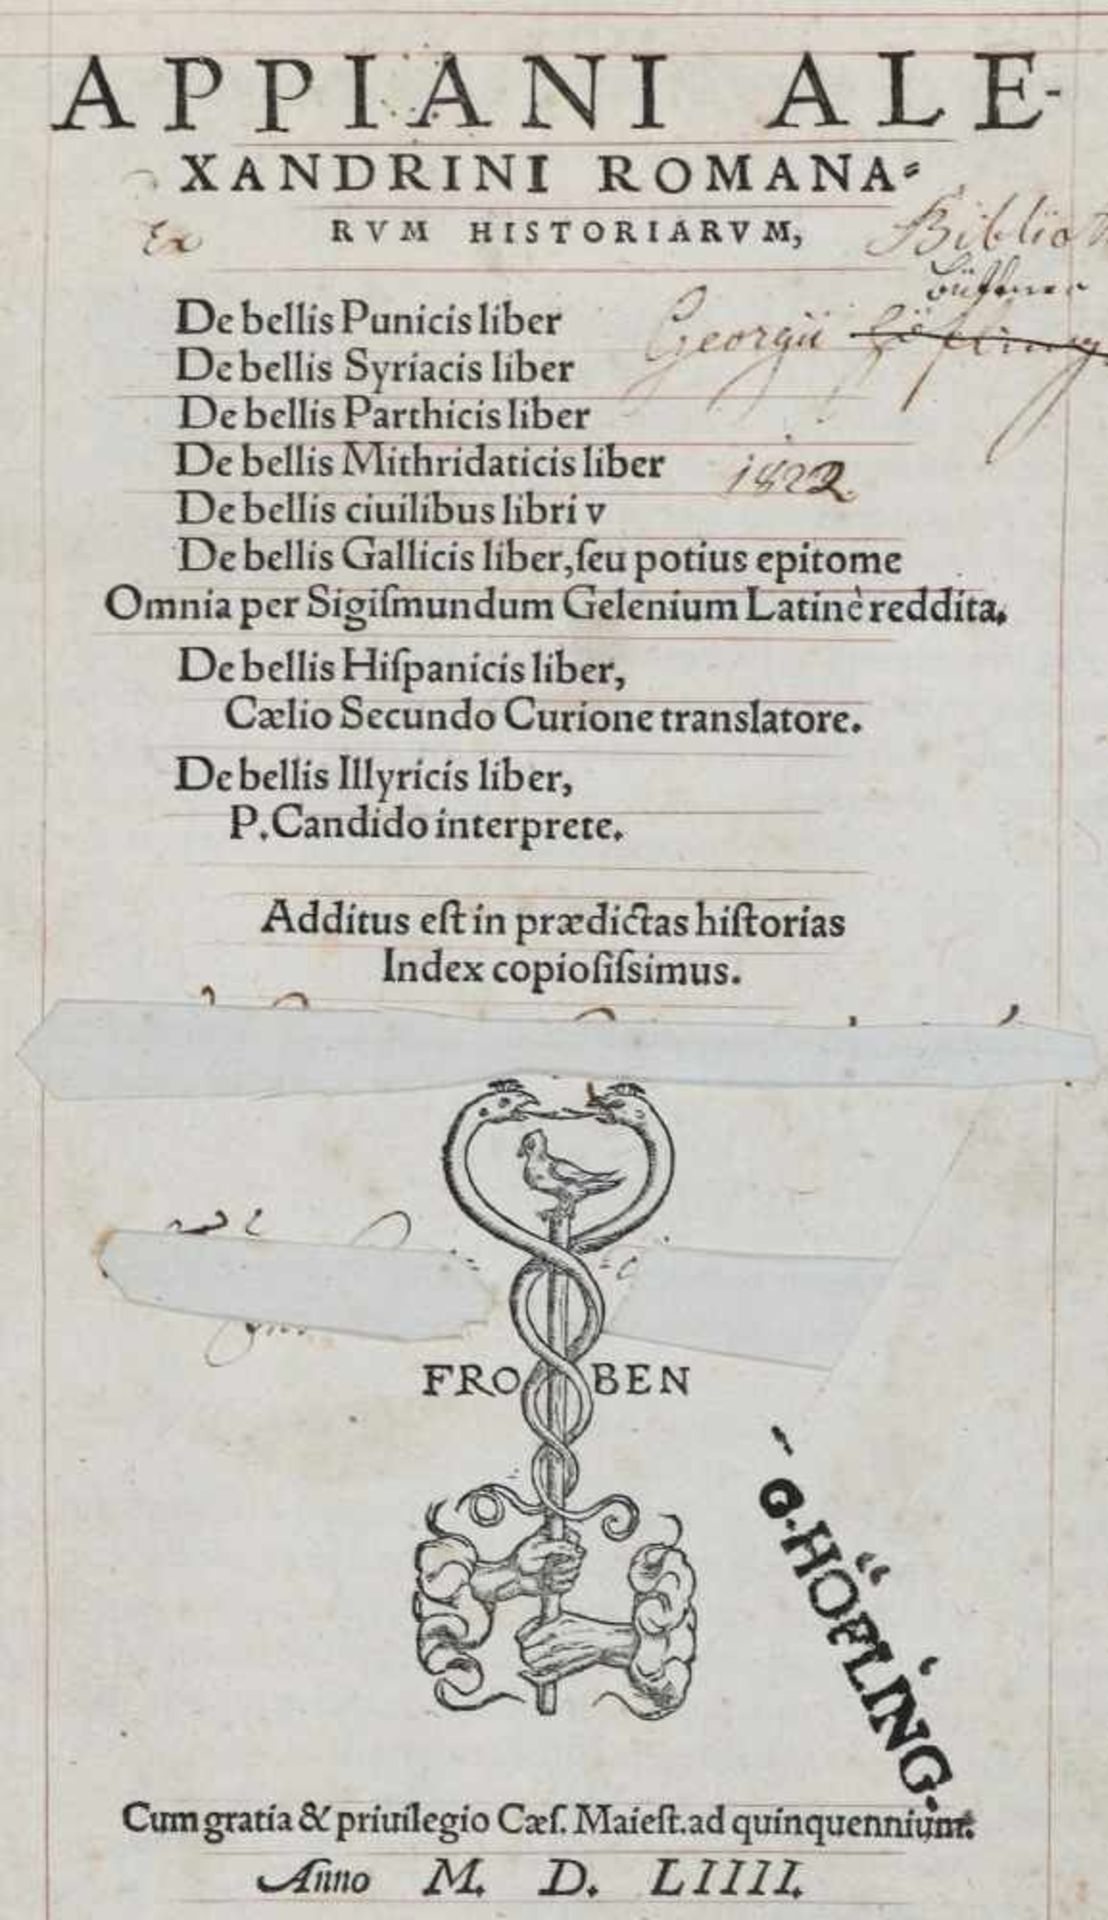 APPIANI ALE-
XANDRINI ROMANA-
RVM HISTORIARVM,
Ex Bibliot
Georgii Höfling
1822.
De bellis Punicis liber
De bellis Syriacis liber
De bellis Parthicis liber
De bellis Mithridaticis liber
De bellis ciuilibus libri v
De bellis Gallicis liber, ſeu potius epitome
Omnia per Sigiſmundum Gelenium Latinè reddita.
De bellis Hiſpanicis liber,
Cælio Secundo Curione translatore.
De bellis Illyricis liber,
P. Candido interprete.
Additus eſt in prædictas hiſtorias
Index copioſiſsimus.
FROBEN
G. HÖFLING.
Cum gratia & priuilegio Cæſ. Maieſt. ad quinquennium.
Anno M. D. LIIII.